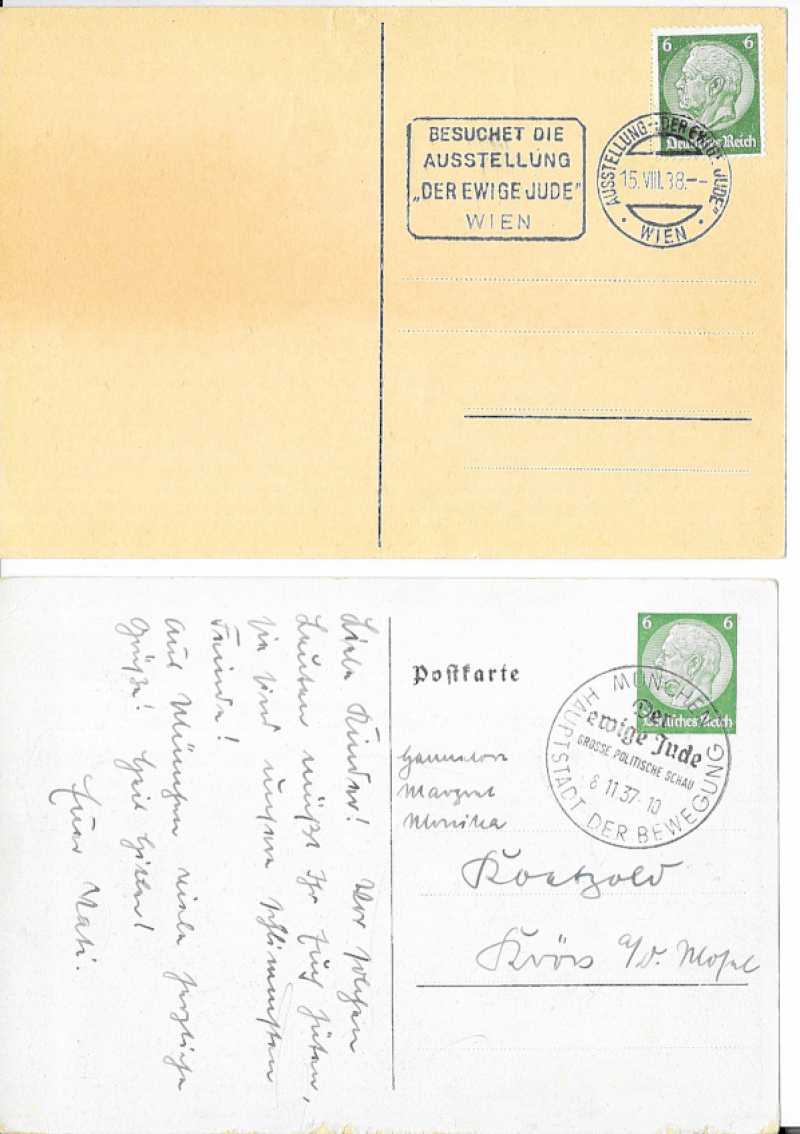 6 6
Deutsches Reich
BESUCHET DIE
AUSSTELLUNG
„DER EWIGE JUDE"
WIEN
AUSSTELLUNG · „DER EWIGE JUDE"
15.VIII.38.--
· WIEN ·
6 6
Deutsches Reich
Postkarte
MÜNCHEN
Der
ewige Jude
GROSSE POLITISCHE SCHAU
8.11.37-10
HAUPTSTADT DER BEWEGUNG
Hannelore
Margret
Monika
Koetzold
Kröv a/d. Mosel
Liebe Kinder! Vor solchen
Leuten müßt Ihr Euch hüten,
sie sind unsere schlimmsten
Feinde!
Aus München viele herzliche
Grüße! Heil Hitler!
Euer Vati.